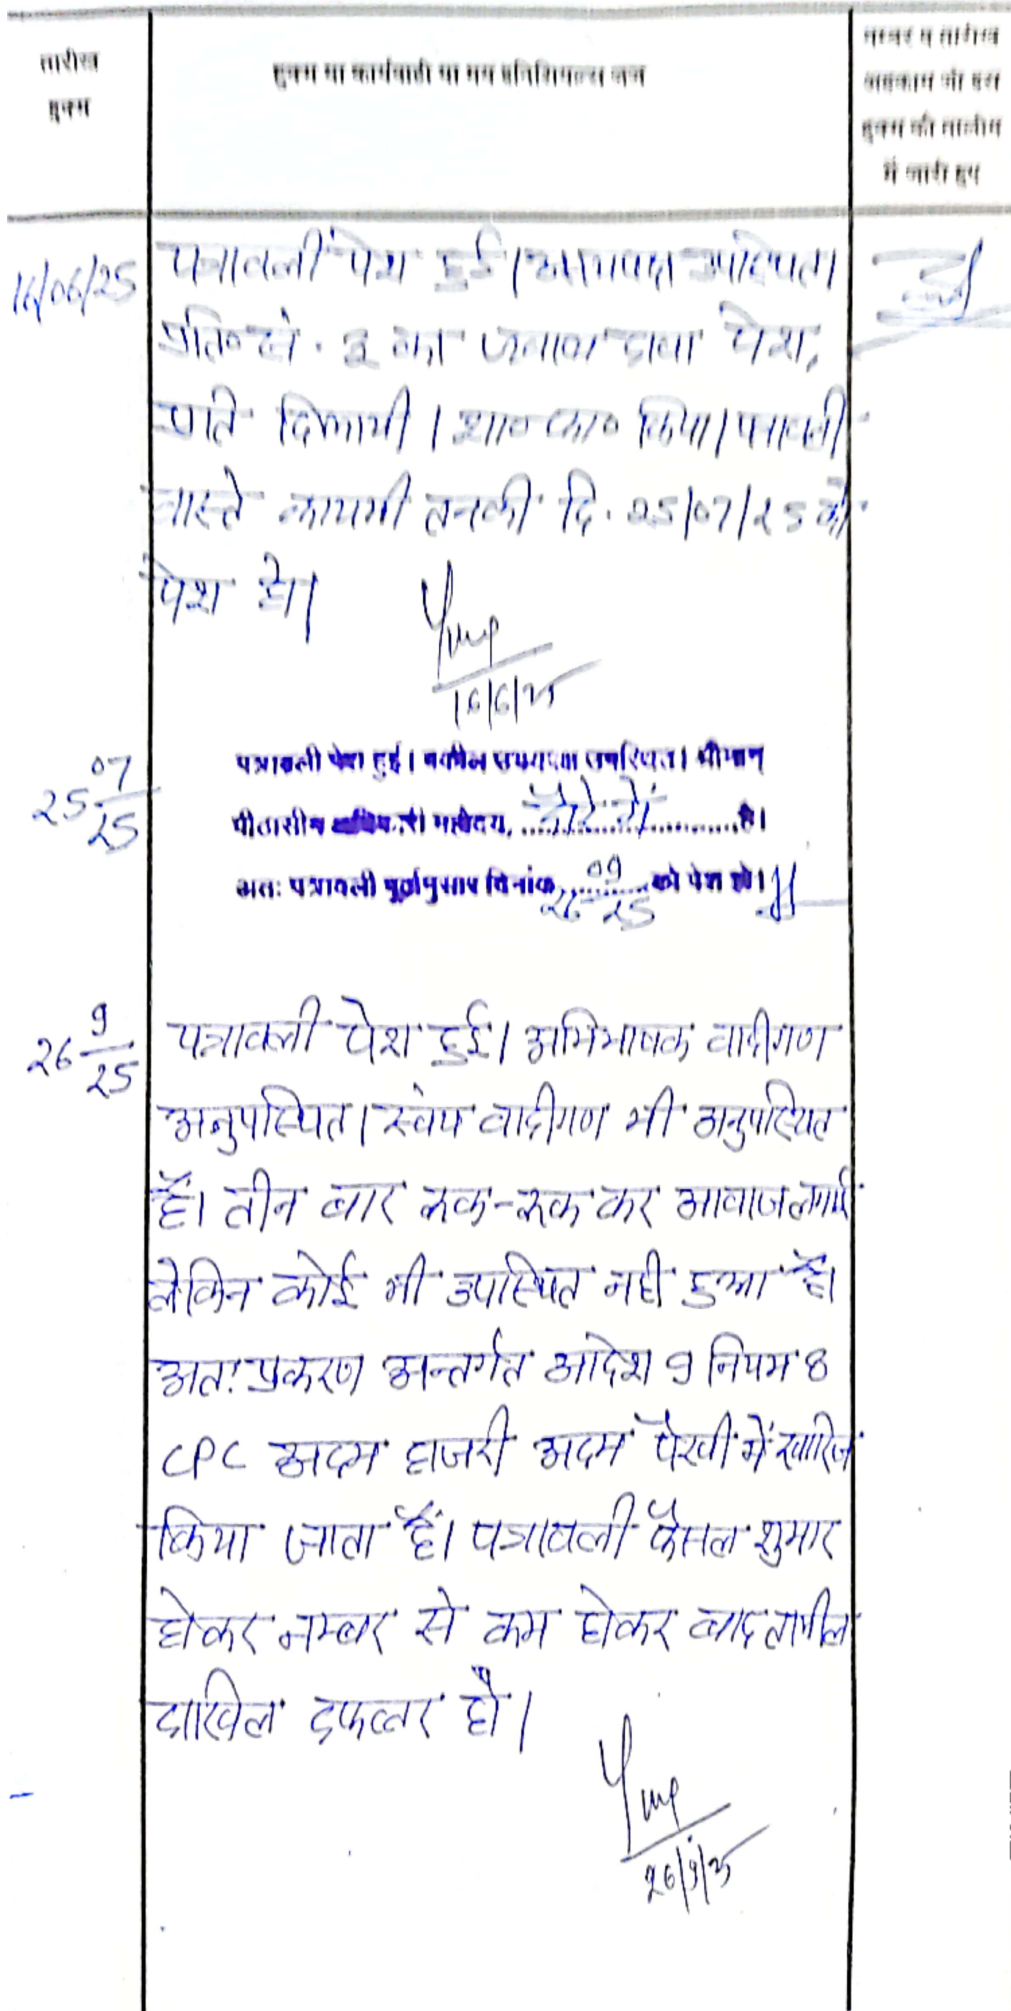 तारीख
हुक्म
हुक्म या कार्यवाही या मय इनिशियल्स जज
नम्बर व तारीख
अहकाम जो इस
हुक्म की तालीम
में जारी हुए
16/06/25
पत्रावली पेश हुई। उभयपक्ष उपस्थित।
प्रति० सं. 2 का जवाब दावा पेश,
प्रति दिलायी। शा० का० किया। पत्रावली
वास्ते कायमी तनकी दि. 25/07/25 को
पेश हो।
16/6/25
25 07/25
पत्रावली पेश हुई। वकील उभयपक्ष उपस्थित। श्रीमान्
पीठासीन अधिकारी महोदय, ..... दौरे में ..... है।
अतः पत्रावली पूर्वानुसार दिनांक 26 09/25 को पेश हो।
26 9/25
पत्रावली पेश हुई। अभिभाषक वादीगण
अनुपस्थित। स्वंय वादीगण भी अनुपस्थित
है। तीन बार रूक-रूक कर आवाज लगाई
लेकिन कोई भी उपस्थित नही हुआ है।
अतः प्रकरण अन्तर्गत आदेश 9 नियम 8
CPC अदम हाजरी अदम पैरवी में खारिज
किया जाता हैं। पत्रावली फैसल शुमार
होकर नम्बर से कम होकर बाद तामील
दाखिल दफ्तर हो।
26/9/25